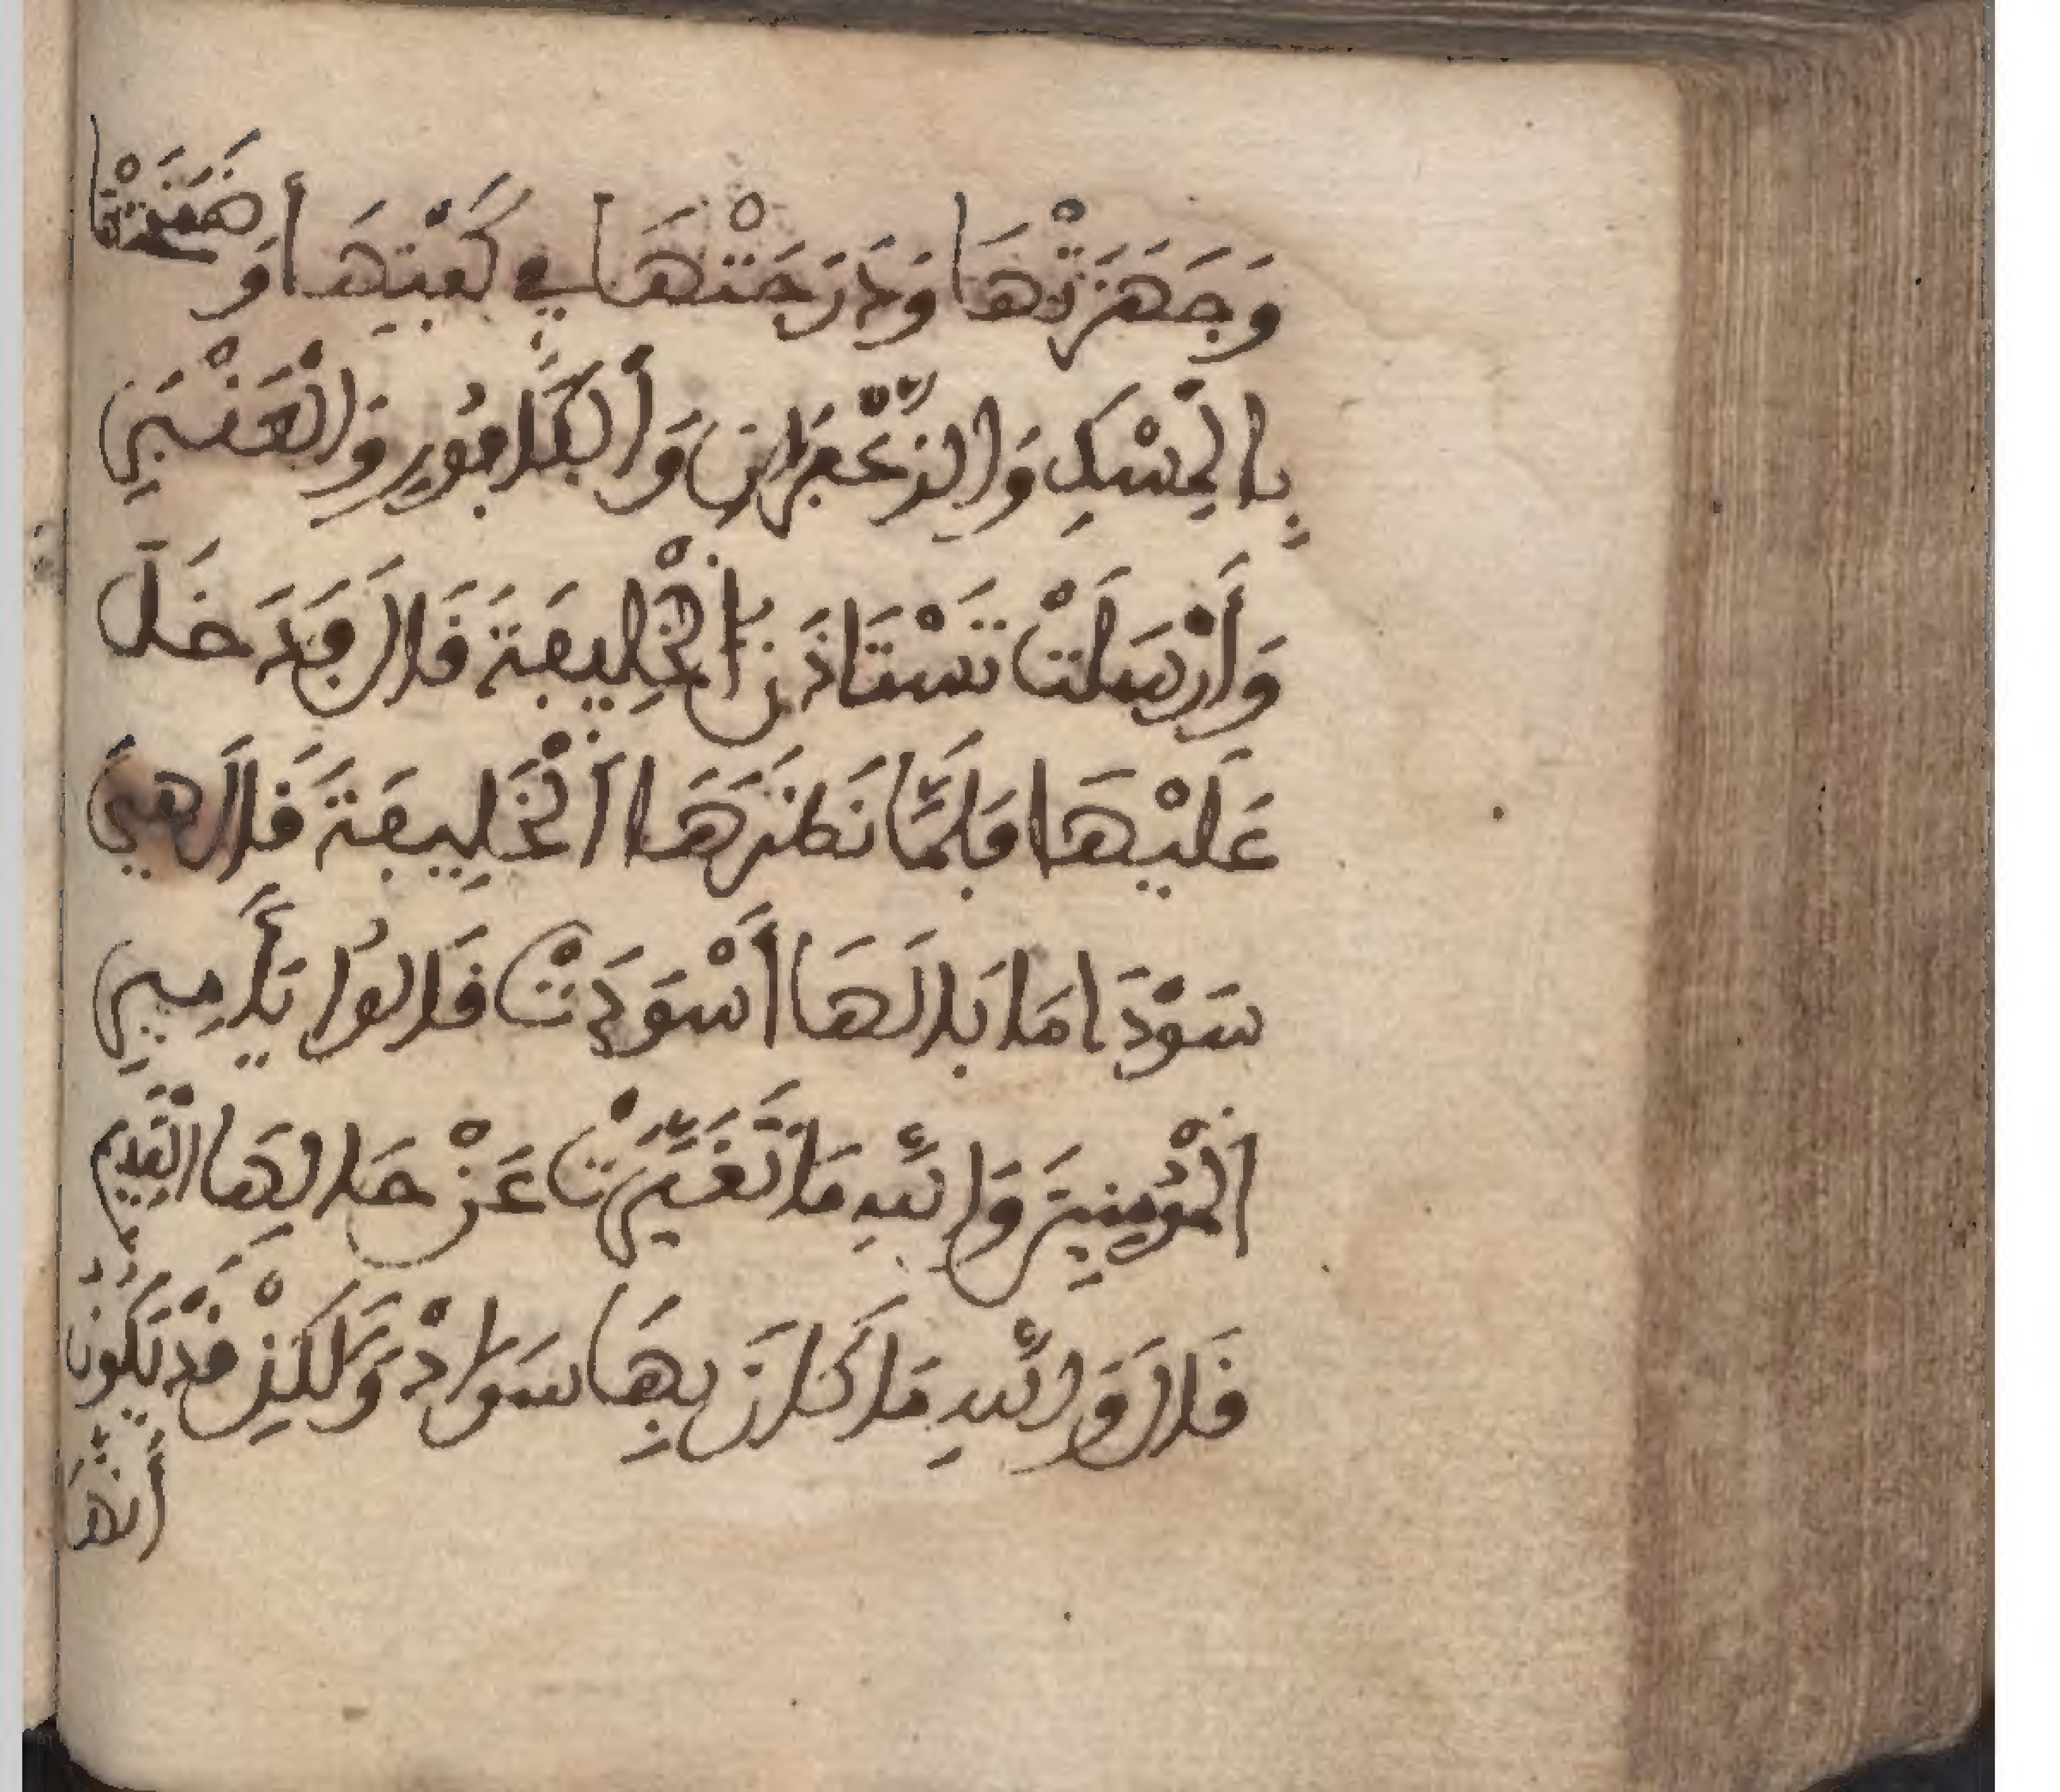 وَجَهَزَتْهَا وَدَرَجَتْهَا فِي كَفَنِهَا وَضَمَخَتْهَا
بِالْمِسْكِ وَالزَّعْفَرَانِ وَالْكَافُورِ وَالْعَنْبَرِ
وَأَرْسَلَتْ تَسْتَاذَنُ الْخَلِيفَةَ قَالَ فَدَخَلَ
عَلَيْهَا فَلَمَّا نَظَرَهَا الْخَلِيفَةَ قَالَ هِيَ
سَوْدَا مَا بَالَهَا أَسْوَدَتْ قَالُوا يَأَمِيرِ
الْمُؤْمِنِينَ وَاللَّهِ مَا تَغَيَّرَتْ عَنْ حَالِهَا الْقَدِيمِ
قَالَ وَاللَّهِ مَا كَانَ بِهَا سَوَادْ وَلَكِنْ قَدْ تَكُونُ
أَنَّهَا